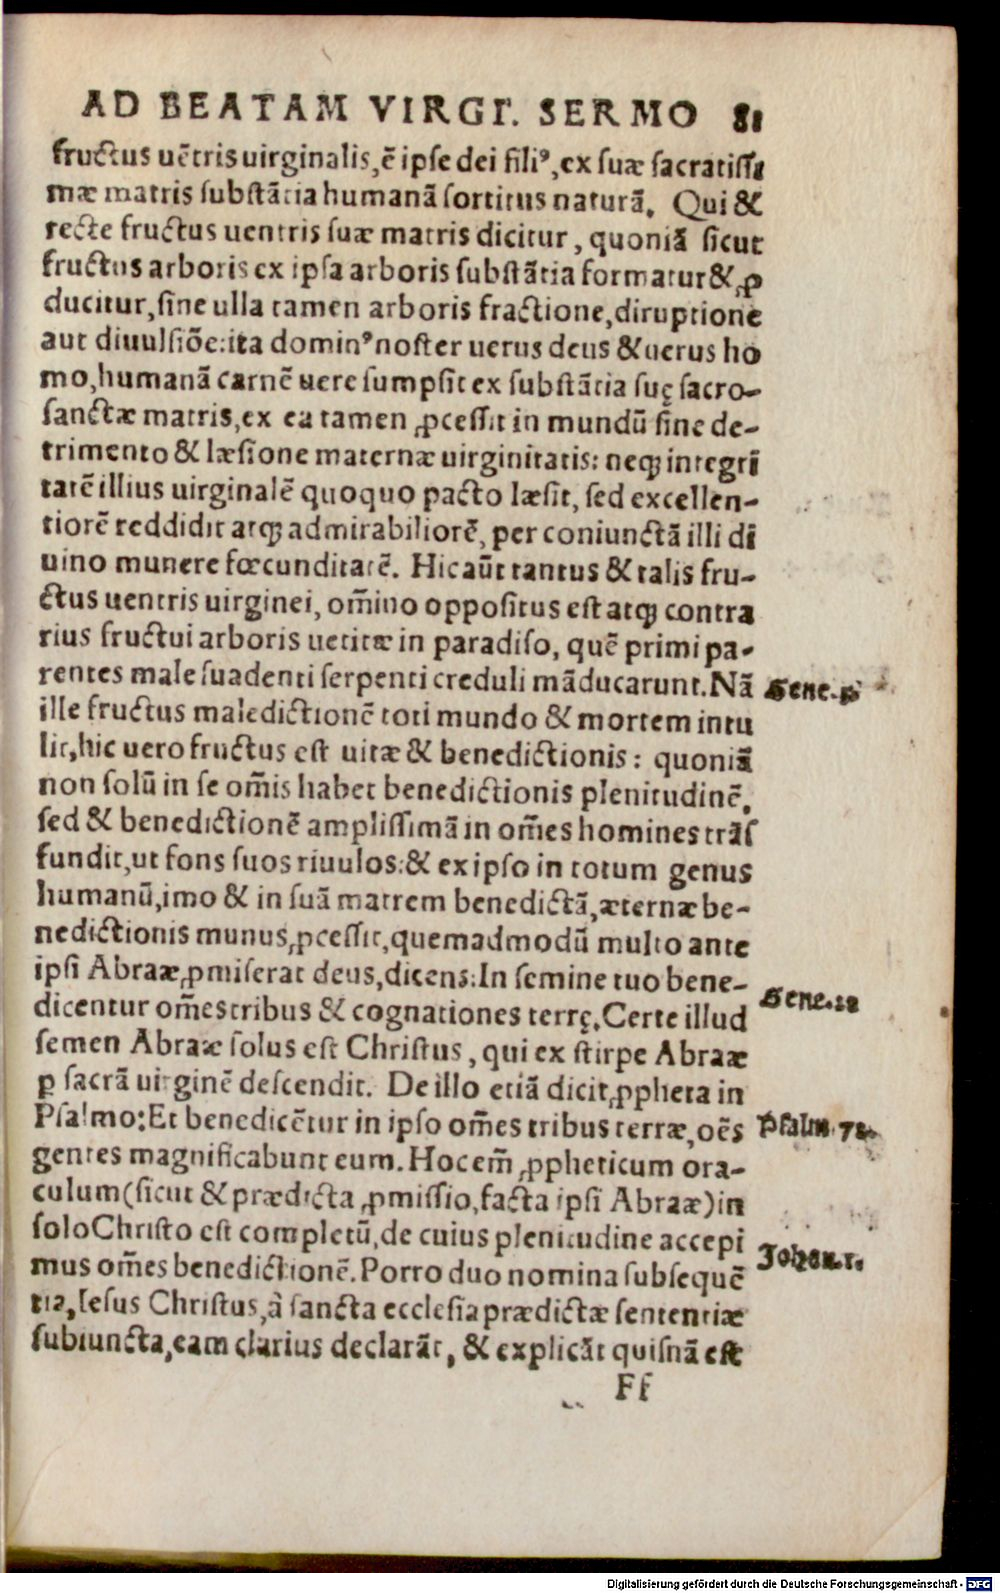 AD BEATAM VIRGI. SERMO 81
fructus uẽtris uirginalis, ẽ ipse dei filiꝰ, ex suæ sacratissi
mæ matris substãtia humanã sortitus naturã. Qui &
recte fructus uentris suæ matris dicitur, quoniã sicut
fructus arboris ex ipsa arboris substãtia formatur & ꝓ
ducitur, sine ulla tamen arboris fractione, diruptione
aut diuulsiõe: ita dominꝰ noster uerus deus & uerus ho
mo, humanã carnẽ uere sumpsit ex substãtia suę sacro-
sanctæ matris, ex ea tamen ꝓcessit in mundũ sine de-
trimento & læsione maternæ uirginitatis: neqꝫ integrĩ
tatẽ illius uirginalẽ quoquo pacto læsit, sed excellen-
tiorẽ reddidit atqꝫ admirabiliorẽ, per coniunctã illi di
uino munere fœcunditatẽ. Hic aũt tantus & talis fru-
ctus uentris uirginei, om̃ino oppositus est atqꝫ contra
rius fructui arboris uetitæ in paradiso, quẽ primi pa-
rentes male suadenti serpenti creduli mãducarunt. Nã
Gene. 3
ille fructus maledictionẽ toti mundo & mortem intu
lit, hic uero fructus est uitæ & benedictionis: quoniã
non solũ in se om̃is habet benedictionis plenitudinẽ,
sed & benedictionẽ amplissimã in om̃es homines trãs
fundit, ut fons suos riuulos: & ex ipso in totum genus
humanũ, imo & in suã matrem benedictã, æternæ be-
nedictionis munus ꝓcessit, quemadmodũ multo ante
ipsi Abraæ ꝓmiserat deus, dicens: In semine tuo bene-
Gene. 12
dicentur om̃es tribus & cognationes terrę. Certe illud
semen Abraæ solus est Christus, qui ex stirpe Abraæ
ꝑ sacrã uirginẽ descendit. De illo etiã dicit ꝓpheta in
Psalmo: Et benedicẽtur in ipso om̃es tribus terræ, oẽs
Psalm. 72.
gentes magnificabunt eum. Hoc em̃ ꝓpheticum ora-
culum (sicut & prædicta ꝓmissio, facta ipsi Abraæ) in
solo Christo est completũ, de cuius plenitudine accepi
Johan. 1.
mus om̃es benedictionẽ. Porro duo nomina subsequẽ
tia, Iesus Christus, à sancta ecclesia prædictæ sententiæ
subiuncta, eam clarius declarãt, & explicãt quisnã est
Ff
Digitalisierung gefördert durch die Deutsche Forschungsgemeinschaft - DFG